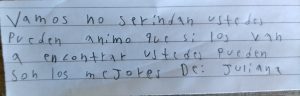 Vamos no serindan ustedes
Pueden animo que si los van
a encontrar ustedes pueden
son los mejores De: Juliana